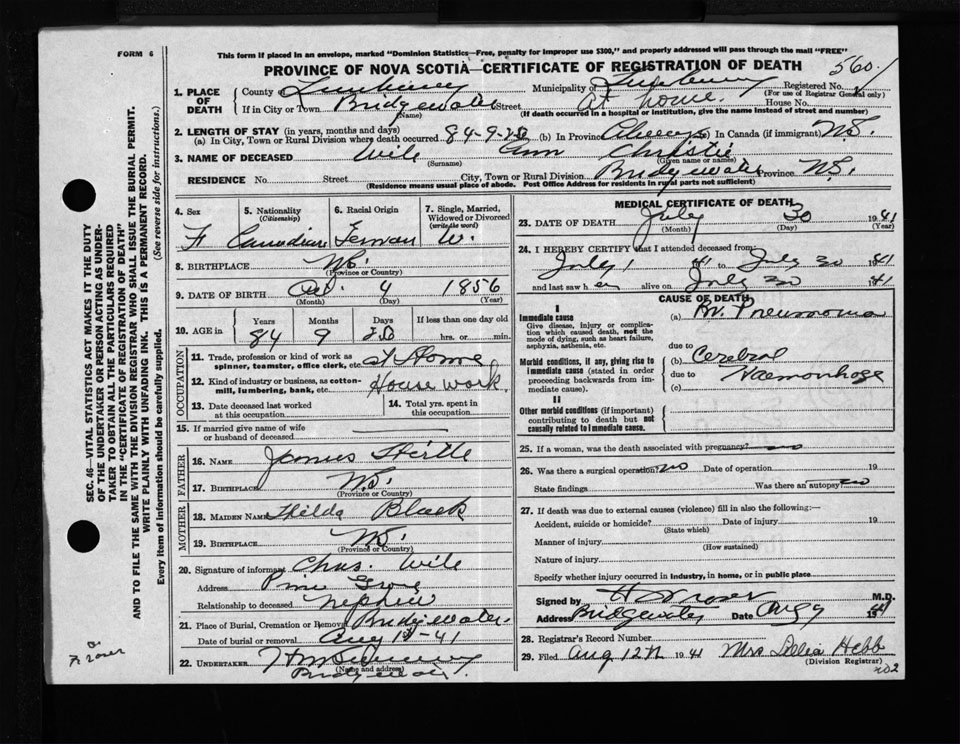 FORM 6
This form if placed in an envelope, marked "Dominion Statistics—Free, penalty for improper use $300," and properly addressed will pass through the mail "FREE"
PROVINCE OF NOVA SCOTIA—CERTIFICATE OF REGISTRATION OF DEATH
560
1. PLACE OF DEATH
County of Lunenburg Municipality of Lunenburg Registered No.
(For use of Registrar General only)
If in City or Town Bridgewater Street at home. House No.
(Name) (If death occurred in a hospital or institution, give the name instead of street and number)
2. LENGTH OF STAY (in years, months and days)
(a) In City, Town or Rural Division where death occurred 84-9- (b) In Province Always (c) In Canada (if immigrant) N.S.
3. NAME OF DECEASED Wile Ann Christie
(Surname) (Given name or names)
RESIDENCE No. Street City, Town or Rural Division Bridgewater Province N.S.
(Residence means usual place of abode. Post Office Address for residents in rural parts not sufficient)
4. Sex F
5. Nationality (Citizenship) Canadian
6. Racial Origin German
7. Single, Married, Widowed or Divorced (write the word) W.
8. BIRTHPLACE N.S.
(Province or Country)
9. DATE OF BIRTH Oct. 4 1856
(Month) (Day) (Year)
10. AGE in Years Months Days If less than one day old
84 9 hrs. or min.
OCCUPATION
11. Trade, profession or kind of work as spinner, teamster, office clerk, etc. at Home
12. Kind of industry or business, as cotton-mill, lumbering, bank, etc. House work.
13. Date deceased last worked at this occupation
14. Total yrs. spent in this occupation
15. If married give name of wife or husband of deceased
FATHER
16. NAME James
17. BIRTHPLACE N.S.
(Province or Country)
MOTHER
18. MAIDEN NAME Hilda Black
19. BIRTHPLACE N.S.
(Province or Country)
20. Signature of informant Chas. Wile
Address Pine Grove
Relationship to deceased nephew
21. Place of Burial, Cremation or Removal Bridgewater
Date of burial or removal Aug 1st-41
22. UNDERTAKER
(Name and address)
Bridgewater.
MEDICAL CERTIFICATE OF DEATH
23. DATE OF DEATH July 30 1941
(Month) (Day) (Year)
24. I HEREBY CERTIFY that I attended deceased from:
July 1 41 to July 30 1941
and last saw her alive on July 30 1941
CAUSE OF DEATH
I
Immediate cause
Give disease, injury or complication which caused death, not the mode of dying, such as heart failure, asphyxia, asthenia, etc.
(a) Br. Pneumonia
due to
Morbid conditions, if any, giving rise to immediate cause (stated in order proceeding backwards from immediate cause).
(b) Cerebral
due to Haemorrhage
(c)
II
Other morbid conditions (if important) contributing to death but not causally related to immediate cause.
25. If a woman, was the death associated with pregnancy? no
26. Was there a surgical operation? no Date of operation 19
State findings Was there an autopsy? no
27. If death was due to external causes (violence) fill in also the following:—
Accident, suicide or homicide? Date of injury 19
(State which)
Manner of injury
(How sustained)
Nature of injury
Specify whether injury occurred in industry, in home, or in public place
Signed by M.D.
Address Bridgewater Date Aug 9 1941
28. Registrar's Record Number
29. Filed Aug 12th 1941 Mrs Hebb
(Division Registrar)
202
SEC. 46—VITAL STATISTICS ACT MAKES IT THE DUTY OF THE UNDERTAKER OR PERSON ACTING AS UNDERTAKER TO OBTAIN ALL THE PARTICULARS REQUIRED IN THE "CERTIFICATE OF REGISTRATION OF DEATH" AND TO FILE THE SAME WITH THE DIVISION REGISTRAR WHO SHALL ISSUE THE BURIAL PERMIT.
WRITE PLAINLY WITH UNFADING INK. THIS IS A PERMANENT RECORD.
Every item of information should be carefully supplied. (See reverse side for instructions.)